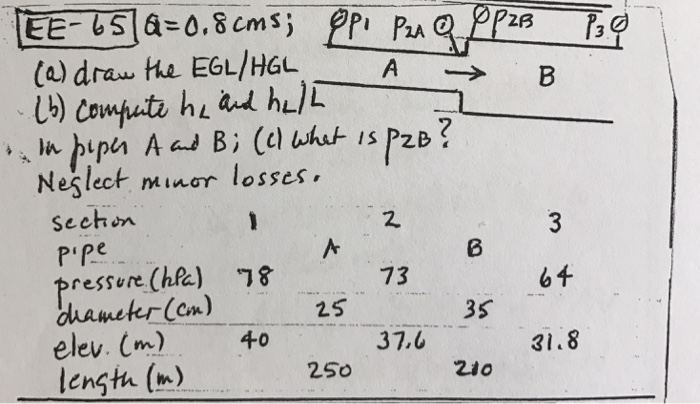 EE-65 Q=0.8cms; P1 P2A P2B P3
(a) draw the EGL/HGL A → B
(b) compute hL and hL/L
in pipes A and B; (c) what is P2B?
Neglect minor losses.
section 1 2 3
pipe A B
pressure (hPa) 78 73 64
diameter (cm) 25 35
elev. (m) 40 37.6 31.8
length (m) 250 210